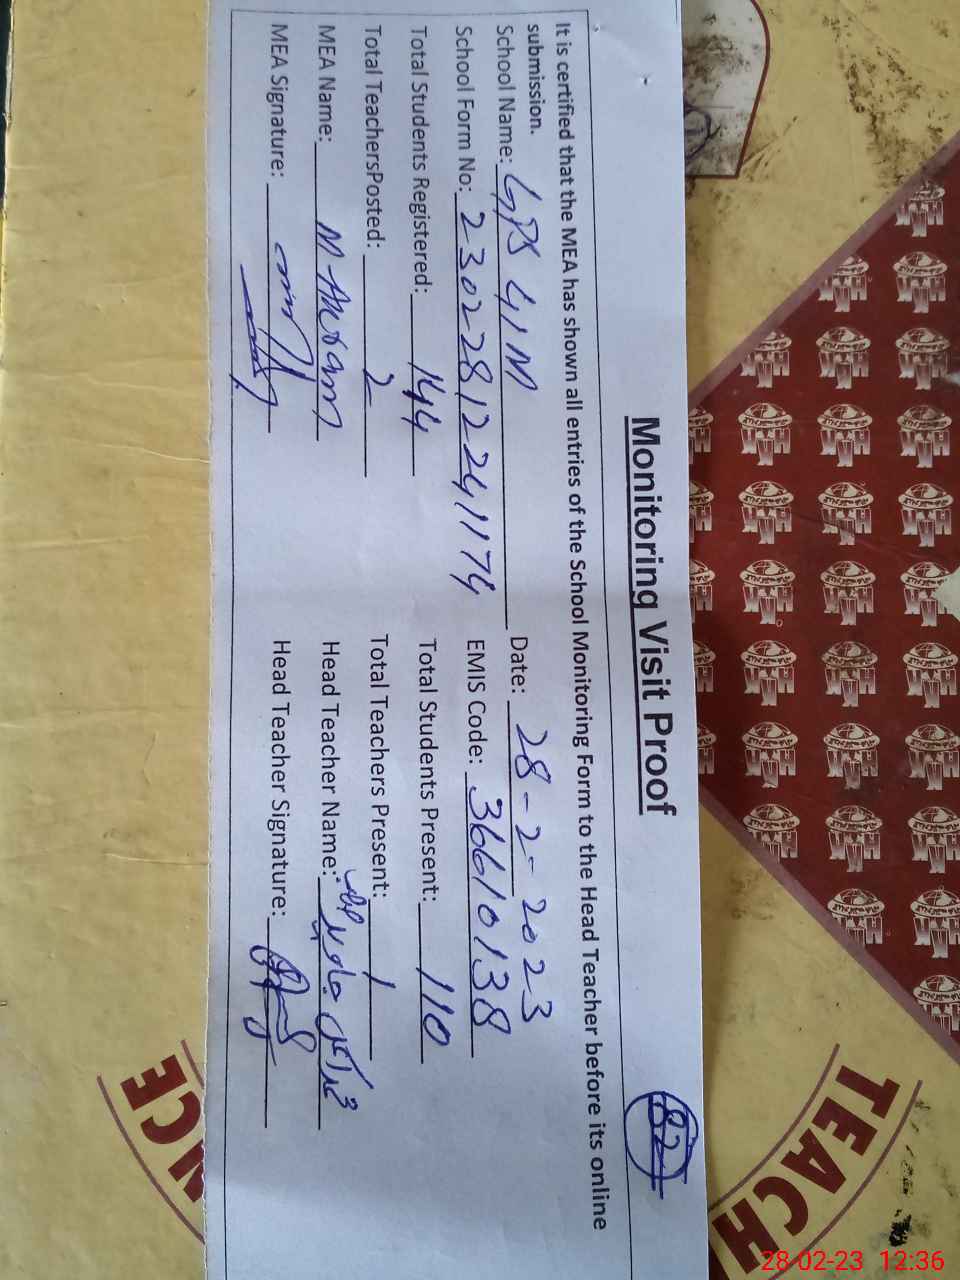 Monitoring Visit Proof
82
It is certified that the MEA has shown all entries of the School Monitoring Form to the Head Teacher before its online
submission.
School Name: GPS 41M Date: 28-2-2023
School Form No: 23022812241174 EMIS Code: 36610138
Total Students Registered: 144 Total Students Present: 110
Total TeachersPosted: 2 Total Teachers Present: 1
MEA Name: M. Akram Head Teacher Name:
MEA Signature: Head Teacher Signature:
TEACH
NCE
28-02-23 12:36